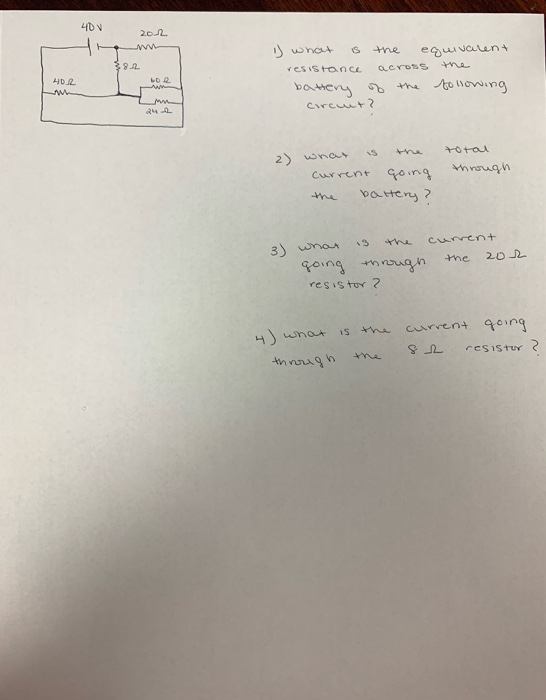 40V
20Ω
8Ω
40Ω
60Ω
24Ω
1) what is the equivalent
resistance across the
battery of the following
circuit?
2) what is the total
current going through
the battery?
3) what is the current
going through the 20Ω
resistor?
4) what is the current going
through the 8Ω resistor?